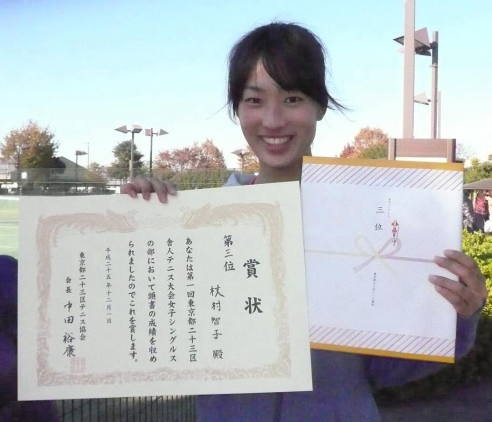 賞状
第三位
杖村智子 殿
あなたは第一回東京都二十三区
舎人テニス大会女子シングルス
の部において頭書の成績を収め
られましたのでこれを賞します。
平成二十五年十二月一日
東京都二十三区テニス協会
会長 中田裕康
三位